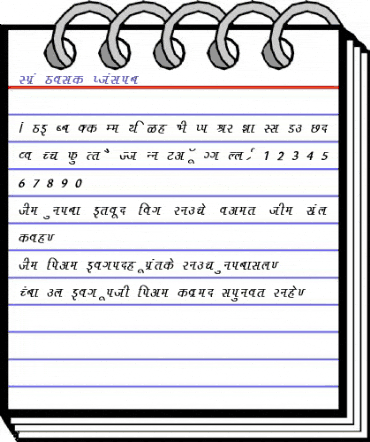 स्प्रं ठवसक प्जंसपब
ठइ ब्ब क्क म्म र्थि ळह भी प्प श्रर ज्ञा स्स डउ छद
व्व च्च फु त्त ज्ज न्न टअ ग्ग ल्ल 1 2 3 4 5
6 7 8 9 0
जैम ुनपबा इतवूद विग रनउचे वअमत जीम संल
कवहण
जैम पिअम इवगपदह ूप्रंतके रनउच ुनपबासलण
च्ंबा उल इवग ूपजी पिअम कव्रमद सपुनवत रनहेण